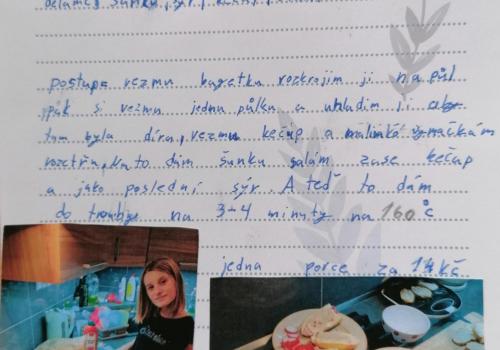 šunku, sýr,
postup: vezmu bagetku rozkrajim ji na půl
pak si vezmu jednu půlku a uhladim ji aby
tam byla díra, vezmu kečup a málinká
rozetřu, na to dám šunku salám zase kečup
a jako poslední sýr. A teď to dám
do trouby na 3-4 minuty na 160 °C
jedna porce za 14 kč